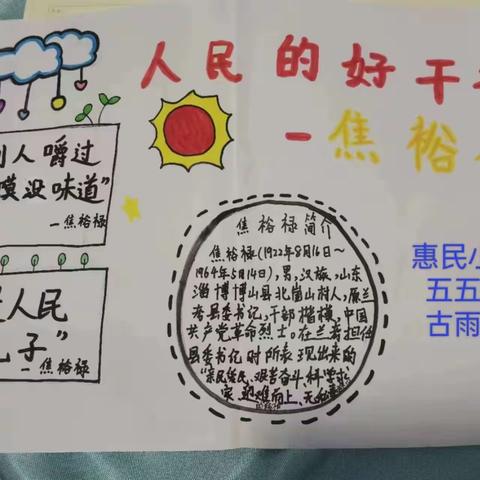 人民的好干
－焦裕
别人嚼过
馍没味道”
－焦裕禄
人民
儿子”
－焦裕禄
焦裕禄简介
焦裕禄(1922年8月16日～
1964年5月14日),男,汉族,山东
淄博博山县北崮山村人,原兰
考县委书记,干部楷模,中国
共产党革命烈士。在兰考担任
县委书记时所表现出来的
“亲民爱民、艰苦奋斗、科学求
迎难而上、无私
惠民小
五五
古雨